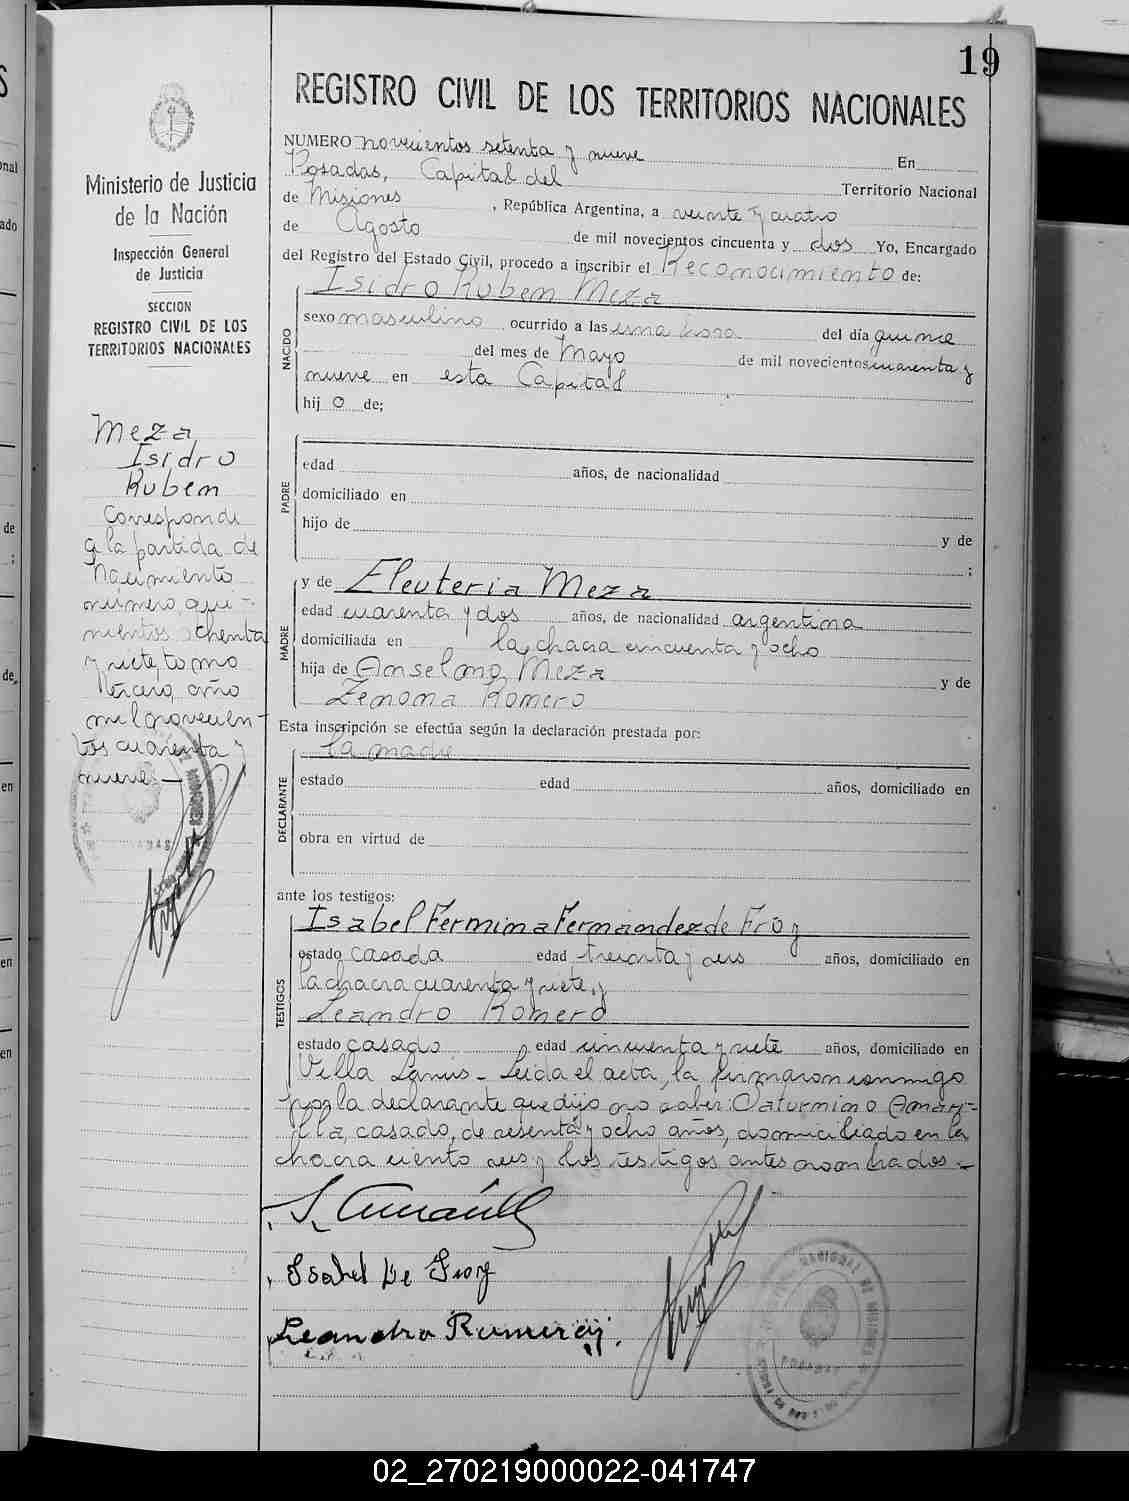 19
REGISTRO CIVIL DE LOS TERRITORIOS NACIONALES
Ministerio de Justicia
de la Nación
Inspección General
de Justicia
SECCION
REGISTRO CIVIL DE LOS
TERRITORIOS NACIONALES
Meza
Isidro
Ruben
Corresponde
a la partida de
nacimiento
número qui-
nientos ochenta
y siete, tomo
tercero, año
mil novecien-
tos cuarenta y
nueve.—
NUMERO novecientos setenta y nueve En
Posadas, Capital del Territorio Nacional
de Misiones, República Argentina, a veinte y cuatro
de Agosto de mil novecientos cincuenta y dos Yo, Encargado
del Registro del Estado Civil, procedo a inscribir el Reconocimiento de:
Isidro Ruben Meza
NACIDO
sexo masculino ocurrido a las una hora del día quince
del mes de Mayo de mil novecientos cuarenta y
nueve en esta Capital
hij o de;
PADRE
edad años, de nacionalidad
domiciliado en
hijo de y de
;
MADRE
y de Eleuteria Meza
edad cuarenta y dos años, de nacionalidad argentina
domiciliada en la chacra cincuenta y ocho
hija de Anselmo Meza y de
Zenona Romero
Esta inscripción se efectúa según la declaración prestada por:
la madre
DECLARANTE
estado edad años, domiciliado en
obra en virtud de
ante los testigos:
TESTIGOS
Isabel Fermina Fernandez de Froy
estado casada edad treinta y seis años, domiciliado en
la chacra cuarenta y siete, y
Leandro Romero
estado casado edad cincuenta y siete años, domiciliado en
Villa Lanús – Leida el acta, la firmaron conmigo
por la declarante que dijo no saber: Saturnino Amari-
lla, casado, de sesenta y ocho años, domiciliado en la
chacra ciento seis y los testigos antes nombrados –
S. Amarilla
Isabel De Froy
Leandro Romero
POSADAS
02_270219000022-041747